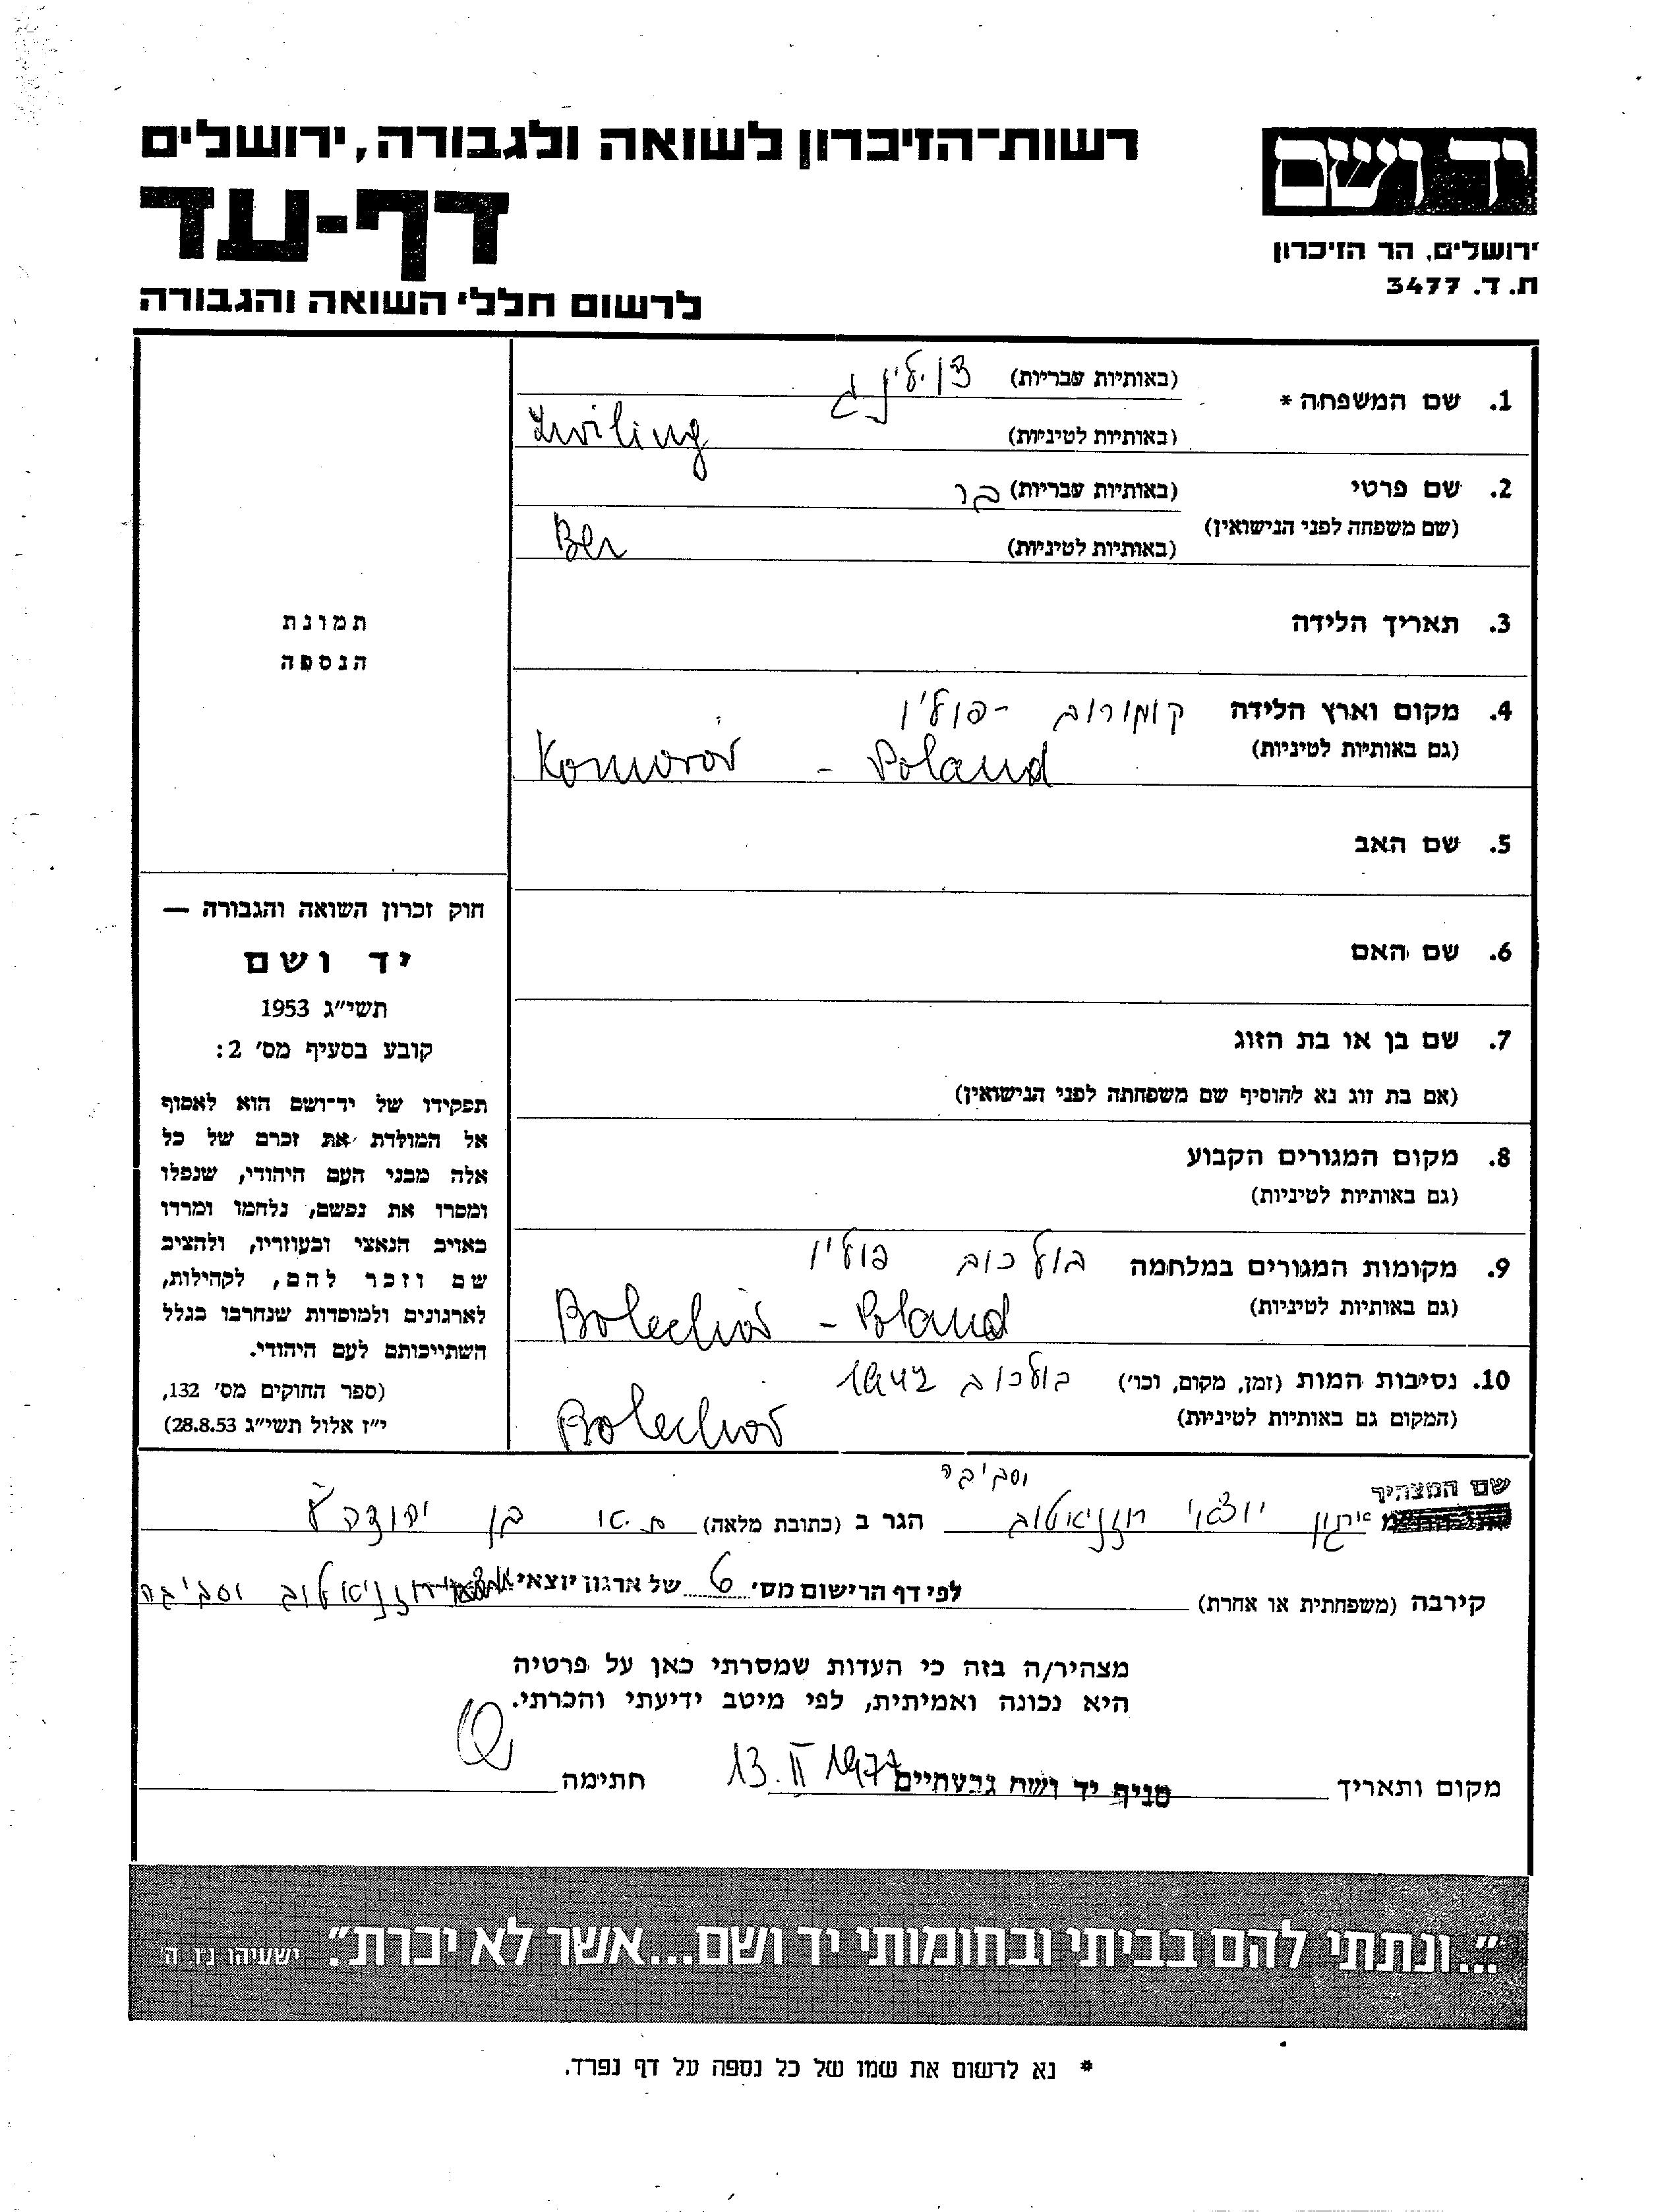 יד ושם
ירושלים, הר הזיכרון
ת.ד. 3477
רשות-הזיכרון לשואה ולגבורה, ירושלים
דף-עד
לרשום חללי השואה והגבורה
1. שם המשפחה * (באותיות עבריות) צוילינג
(באותיות לטיניות) Zwiling
2. שם פרטי (באותיות עבריות) בר
(שם משפחה לפני הנישואין)
(באותיות לטיניות) Ber
3. תאריך הלידה
4. מקום וארץ הלידה קומורוב - פולין
(גם באותיות לטיניות) Komorów - Poland
5. שם האב
6. שם האם
7. שם בן או בת הזוג
(אם בת זוג נא להוסיף שם משפחתה לפני הנישואין)
8. מקום המגורים הקבוע
(גם באותיות לטיניות)
9. מקומות המגורים במלחמה בולכוב פולין
(גם באותיות לטיניות) Bolechów - Poland
10. נסיבות המות (זמן, מקום, וכו') בולכוב 1942
(המקום גם באותיות לטיניות) Bolechów
תמונת
הנספה
חוק זכרון השואה והגבורה —
יד ושם
תשי״ג 1953
קובע בסעיף מס׳ 2:
תפקידו של יד־ושם הוא לאסוף
אל המולדת את זכרם של כל
אלה מבני העם היהודי, שנפלו
ומסרו את נפשם, נלחמו ומרדו
באויב הנאצי ובעוזריו, ולהציב
שם וזכר להם, לקהילות,
לארגונים ולמוסדות שנחרבו בגלל
השתייכותם לעם היהודי.
(ספר החוקים מס׳ 132,
י״ז אלול תשי״ג 28.8.53)
וסביבה
שם המצהיר ארגון יוצאי רוזניאטוב הגר ב (כתובת מלאה) ת.א בן יהודה
קירבה (משפחתית או אחרת) לפי דף הרישום מס׳ 6 של ארגון יוצאי רוזניאטוב וסביבה
מצהיר/ה בזה כי העדות שמסרתי כאן על פרטיה
היא נכונה ואמיתית, לפי מיטב ידיעתי והכרתי.
מקום ותאריך סניף יד ושם גבעתיים 13.II 1977 חתימה
״...ונתתי להם בביתי ובחומותי יד ושם...אשר לא יכרת״. ישעיהו נ״ו, ה׳
* נא לרשום את שמו של כל נספה על דף נפרד.